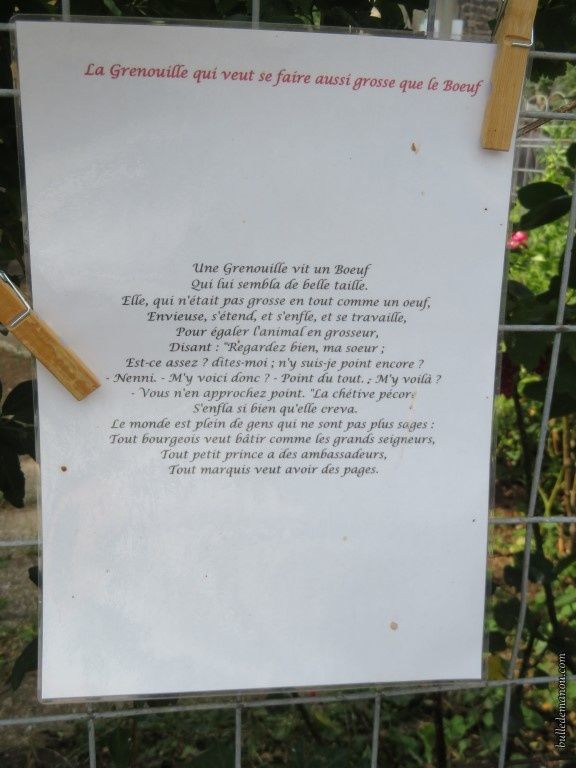 La Grenouille qui veut se faire aussi grosse que le Boeuf
Une Grenouille vit un Boeuf
Qui lui sembla de belle taille.
Elle, qui n'était pas grosse en tout comme un oeuf,
Envieuse, s'étend, et s'enfle, et se travaille,
Pour égaler l'animal en grosseur,
Disant : "Regardez bien, ma soeur ;
Est-ce assez ? dites-moi ; n'y suis-je point encore ?
- Nenni. - M'y voici donc ? - Point du tout. - M'y voilà ?
- Vous n'en approchez point. "La chétive pécore
S'enfla si bien qu'elle creva.
Le monde est plein de gens qui ne sont pas plus sages :
Tout bourgeois veut bâtir comme les grands seigneurs,
Tout petit prince a des ambassadeurs,
Tout marquis veut avoir des pages.
bulledemanou.com